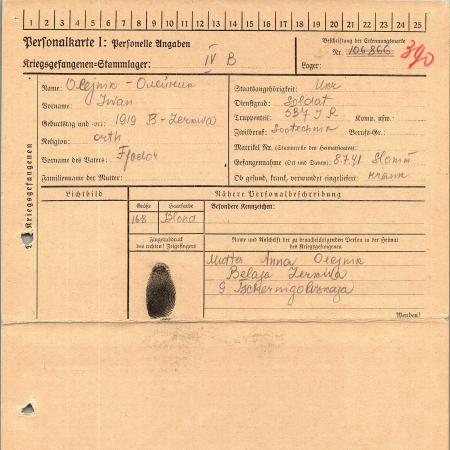 1 2 3 4 5 6 7 8 9 10 11 12 13 14 15 16 17 18 19 20 21 22 23 24 25
Personalkarte I: Personelle Angaben
Kriegsgefangenen-Stammlager: IV B
Beschriftung der Erkennungsmarke
Nr. 106866
390
Lager:
Name: Olejnik - Олейник
Vorname: Iwan
Geburtstag und -ort: 1919 B-Zerkwa
Religion: orth
Vorname des Vaters: Fjodor
Familienname der Mutter:
Staatsangehörigkeit: Ukr
Dienstgrad: Soldat
Truppenteil: 537 J R Komp. usw.:
Zivilberuf: Zootechnik Berufs-Gr.:
Matrikel Nr. (Stammrolle des Heimatstaates):
Gefangennahme (Ort und Datum): 8.7.41
Ob gesund, krank, verwundet eingeliefert: krank
Kriegsgefangenen
Lichtbild
Nähere Personalbeschreibung
Größe Haarfarbe
168 Blond
Besondere Kennzeichen:
Fingerabdruck
des rechten! Zeigefingers
Name und Anschrift der zu benachrichtigenden Person in der Heimat
des Kriegsgefangenen
Mutter Anna Olejnik
Belaja Zerkwa
G Tschernigolvskaja
Wenden!